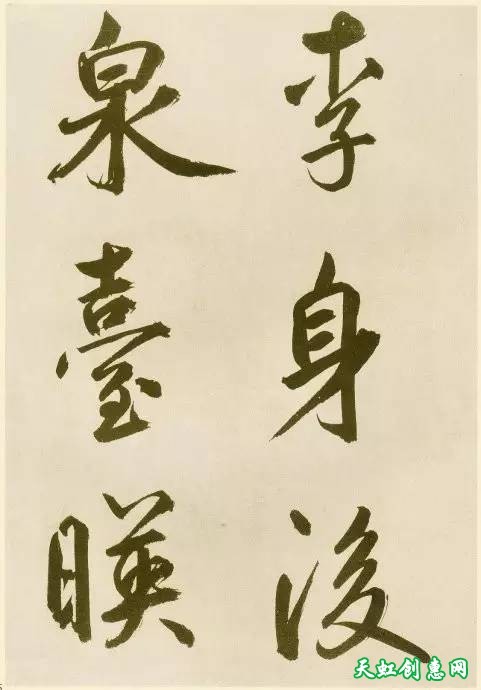 李身後
泉臺暎
天虹创惠网